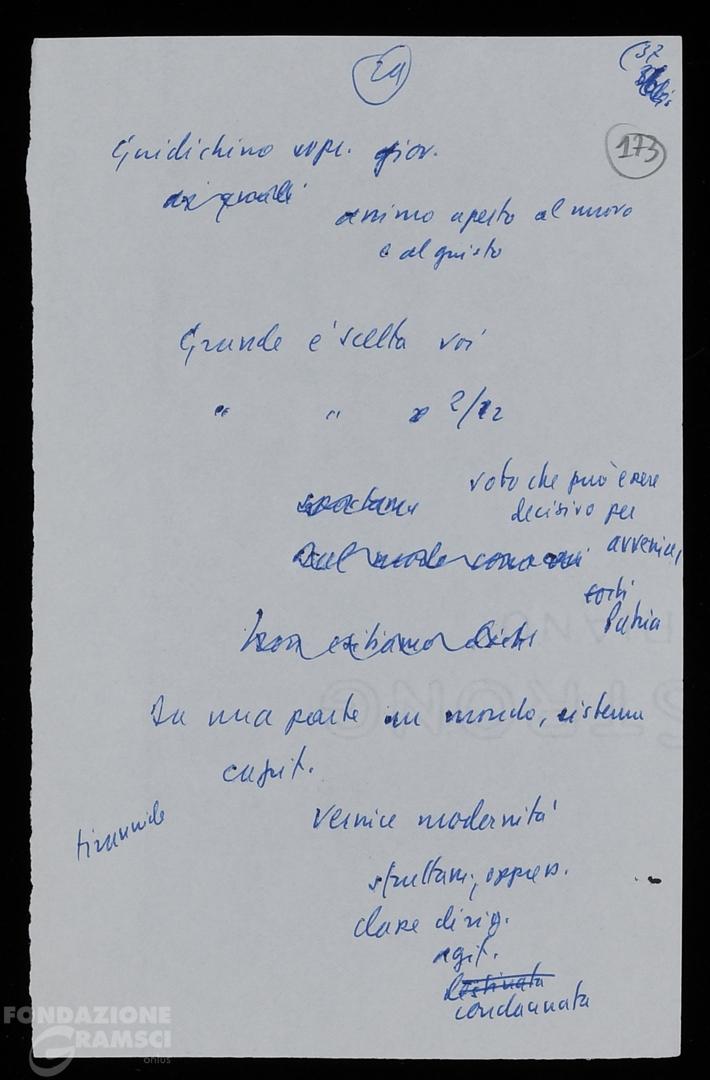 24
(37
173
Giudichino sopr. giov.
ai quali
animo aperto al nuovo
e al giusto
Grande è scelta voi
" " 2/12
voto che può essere
decisivo per
avvenire,
sorti
Patria
Da una parte un mondo, sistema
capit.
tirannide
vernice modernità
sfruttam., oppress.
classe dirig.
agit.
destinata
condannata
FONDAZIONE
GRAMSCI
onlus